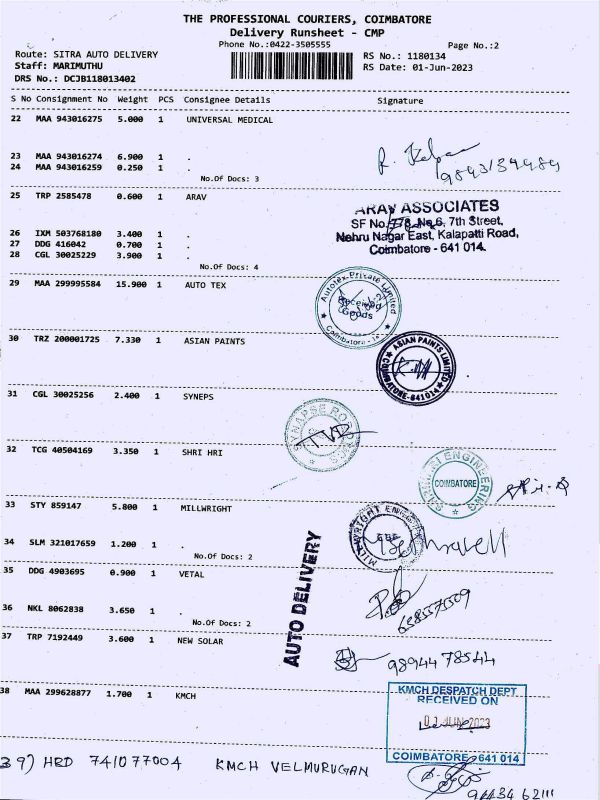 THE PROFESSIONAL COURIERS, COIMBATORE
Delivery Runsheet - CMP
Phone No.:0422-3505555
Page No.:2
Route: SITRA AUTO DELIVERY
RS No.: 1180134
Staff: MARIMUTHU
RS Date: 01-Jun-2023
DRS No.: DCJB118013402
S No Consignment No Weight PCS Consignee Details Signature
22 MAA 943016275 5.000 1 UNIVERSAL MEDICAL
23 MAA 943016274 6.900 1 .
24 MAA 943016259 0.250 1 .
No.Of Docs: 3
25 TRP 2585478 0.600 1 ARAV
ARAV ASSOCIATES
SF No.778, No.6, 7th Street,
Nehru Nagar East, Kalapatti Road,
Coimbatore - 641 014.
26 IXM 503768180 3.400 1 .
27 DDG 416042 0.700 1 .
28 CGL 30025229 3.900 1 .
No.Of Docs: 4
29 MAA 299995584 15.900 1 AUTO TEX
Autotex Private Limited
Received
Goods
30 TRZ 200001725 7.330 1 ASIAN PAINTS
ASIAN PAINTS LIMITED
COIMBATORE-641014
31 CGL 30025256 2.400 1 SYNEPS
32 TCG 40504169 3.350 1 SHRI HRI
ENGINEERING
COIMBATORE
33 STY 859147 5.800 1 MILLWRIGHT
MILLWRIGHT
34 SLM 321017659 1.200 1 .
No.Of Docs: 2
AUTO DELIVERY
35 DDG 4903695 0.900 1 VETAL
36 NKL 8062838 3.650 1 .
No.Of Docs: 2
37 TRP 7192449 3.600 1 NEW SOLAR
98944 78544
38 MAA 299628877 1.700 1 KMCH
KMCH DESPATCH DEPT
RECEIVED ON
JUN 2023
COIMBATORE 641 014
39) HRD 741077004 KMCH VELMURUGAN